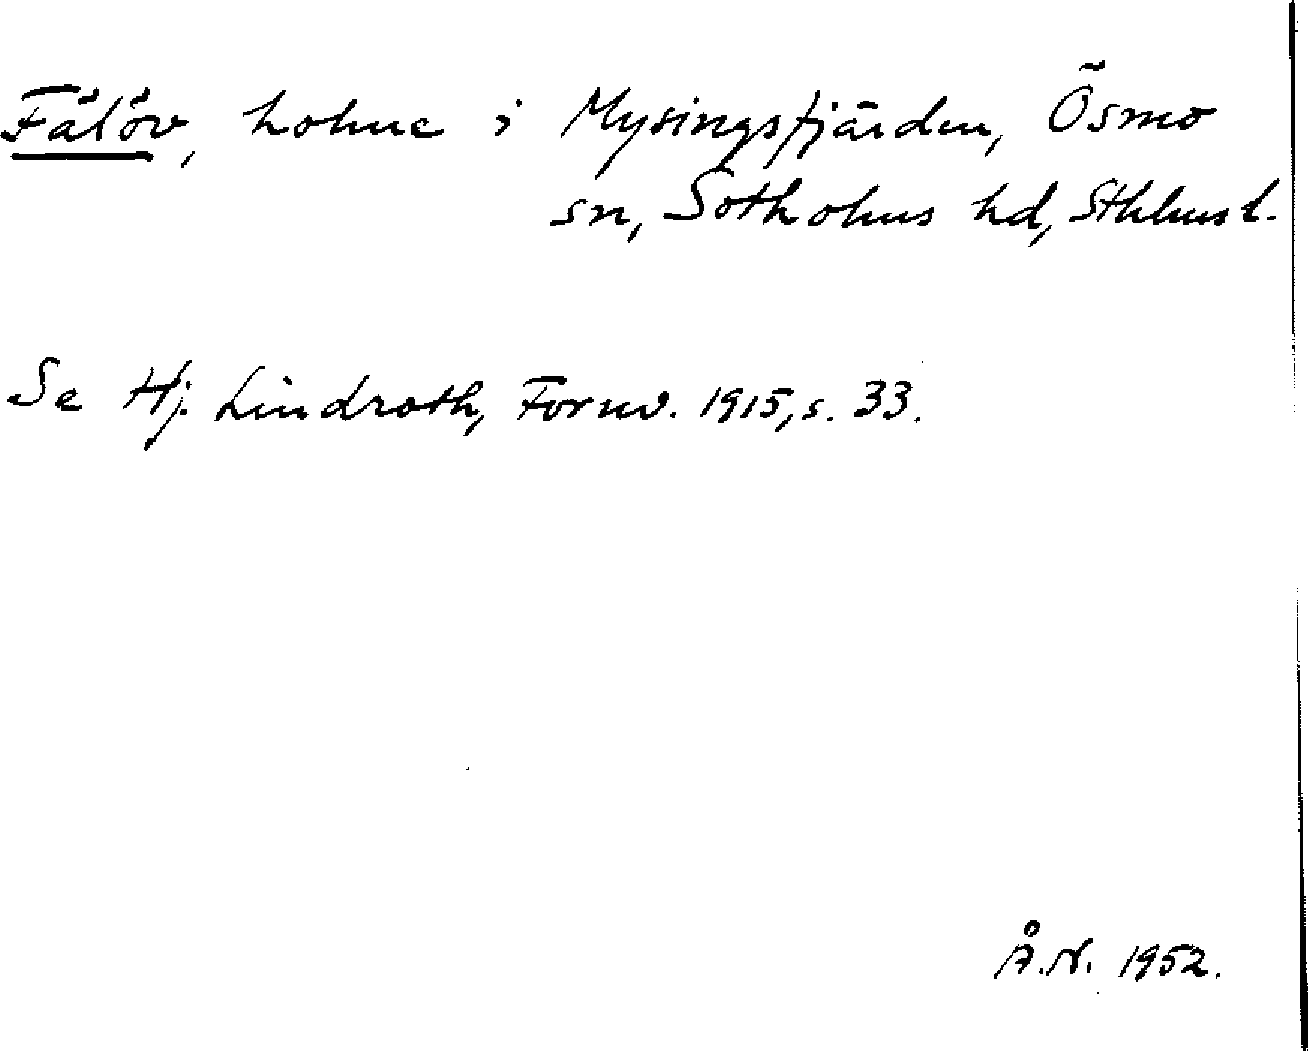 Fälöv, holme i Mysingsfjärden, Ösmo
sn, Sotholms hd, Sthlms l.
Se Hj. Lindroth, Fornv. 1915, s. 33.
Å.N. 1952.